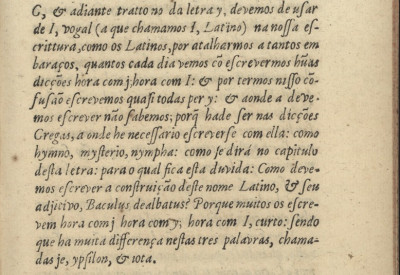 G, & adiante tratto no da letra y, devemos de usar
de I, vogal (a que chamamos I, Latino) na nossa es-
crittura, como os Latinos, por atalharmos a tantos em
baraços, quantos cada dia vemos cõ escrevermos hũas
dicções hora com j, hora com I: & por termos nisso cõ-
fusaõ escrevemos quasi todas per y: & aonde a deve-
mos escrever não sabemos; porq̃ hade ser nas dicções
Gregas, a onde he necessario escreverse com ella: como
hymno, mysterio, nympha: como se dirá no capitulo
desta letra: para o qual fica esta duvida: Como deve-
mos escrever a construição deste nome Latino, & seu
adjitivo, Baculus dealbatus? Porque muitos os escre-
vem hora com j hora com y; hora com I, curto: sendo
que ha muita differença nestas tres palavras, chama-
das je, ypsilon, & iota.